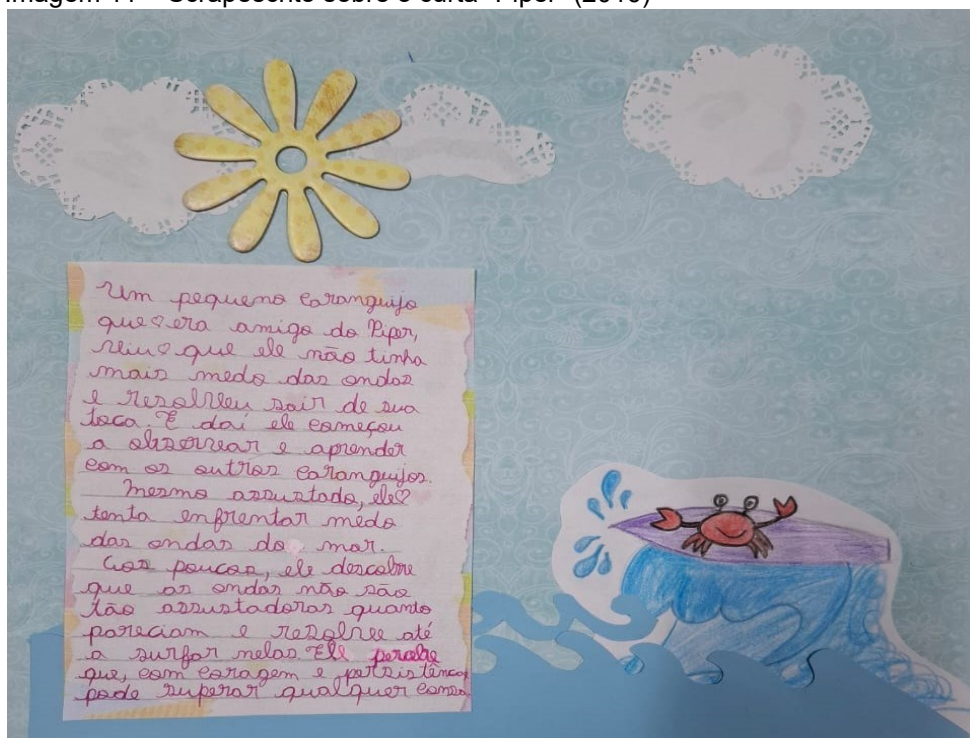 Um pequeno caranguijo
que era amigo do Piper,
viu que ele não tinha
mais medo das ondas
e resolveu sair de sua
toca. E daí ele começou
a observar e aprender
com os outros caranguijos.
Mesmo assustado, ele
tenta enfrentar medo
das ondas do mar.
Aos poucos, ele descobre
que as ondas não são
tão assustadoras quanto
pareciam e resolve até
a surfar nelas Ele percebe
que, com coragem e persistência
pode superar qualquer